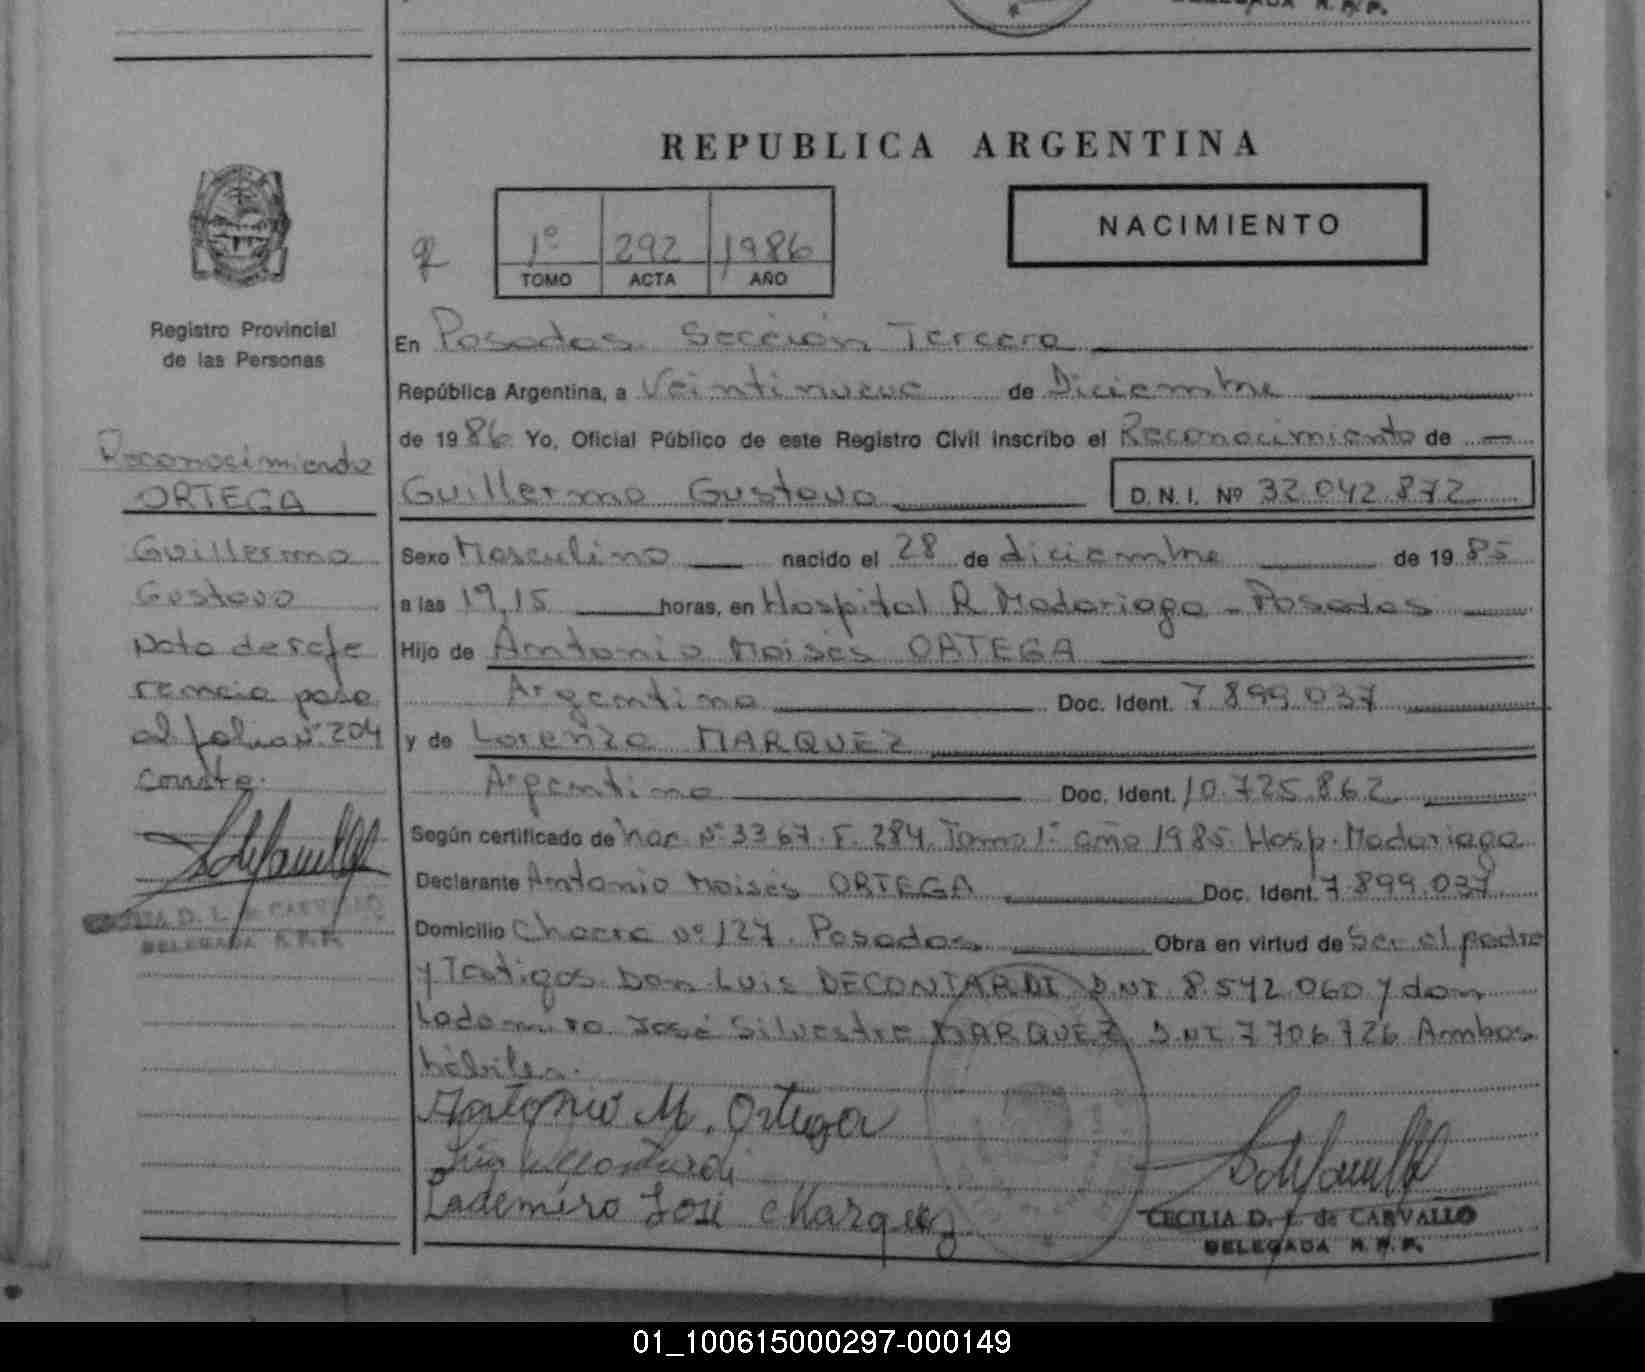 DELEGADA R.P.P.
REPUBLICA ARGENTINA
NACIMIENTO
1º 292 1986
TOMO ACTA AÑO
Registro Provincial
de las Personas
En Posadas Sección Tercera
República Argentina, a Veintinueve de Diciembre
de 1986 Yo, Oficial Público de este Registro Civil inscribo el Reconocimiento de
Guillermo Gustavo D.N.I. Nº 32.042.872
Sexo Masculino nacido el 28 de diciembre de 1985
a las 19,15 horas, en Hospital R. Madariaga - Posadas
Hijo de Antonio Moisés ORTEGA
Argentino Doc. Ident. 7.899.037
y de Lorenza MARQUEZ
Argentina Doc. Ident. 10.725.862
Según certificado de nac. Nº 3367. F. 284. Tomo 1º año 1985. Hosp. Madariaga
Declarante Antonio Moisés ORTEGA Doc. Ident. 7.899.037
Domicilio Chacra Nº 127. Posadas. Obra en virtud de Ser el padre
y Testigos Don Luis DECONTARDI D.N.I 8.542.060 y don
Lademiro José Silvestre MARQUEZ D.N.I 7.706.726 Ambos
hábiles.
Antonio M. Ortega
Lademiro José Marquez
CECILIA D. L. de CARVALLO
DELEGADA R.P.P.
Reconocimiento
ORTEGA
Guillermo
Gustavo
Nota de refe
rencia pasa
al folio Nº 204
Conste.
D. L. de CARVALLO
DELEGADA R.P.P.
01_100615000297-000149